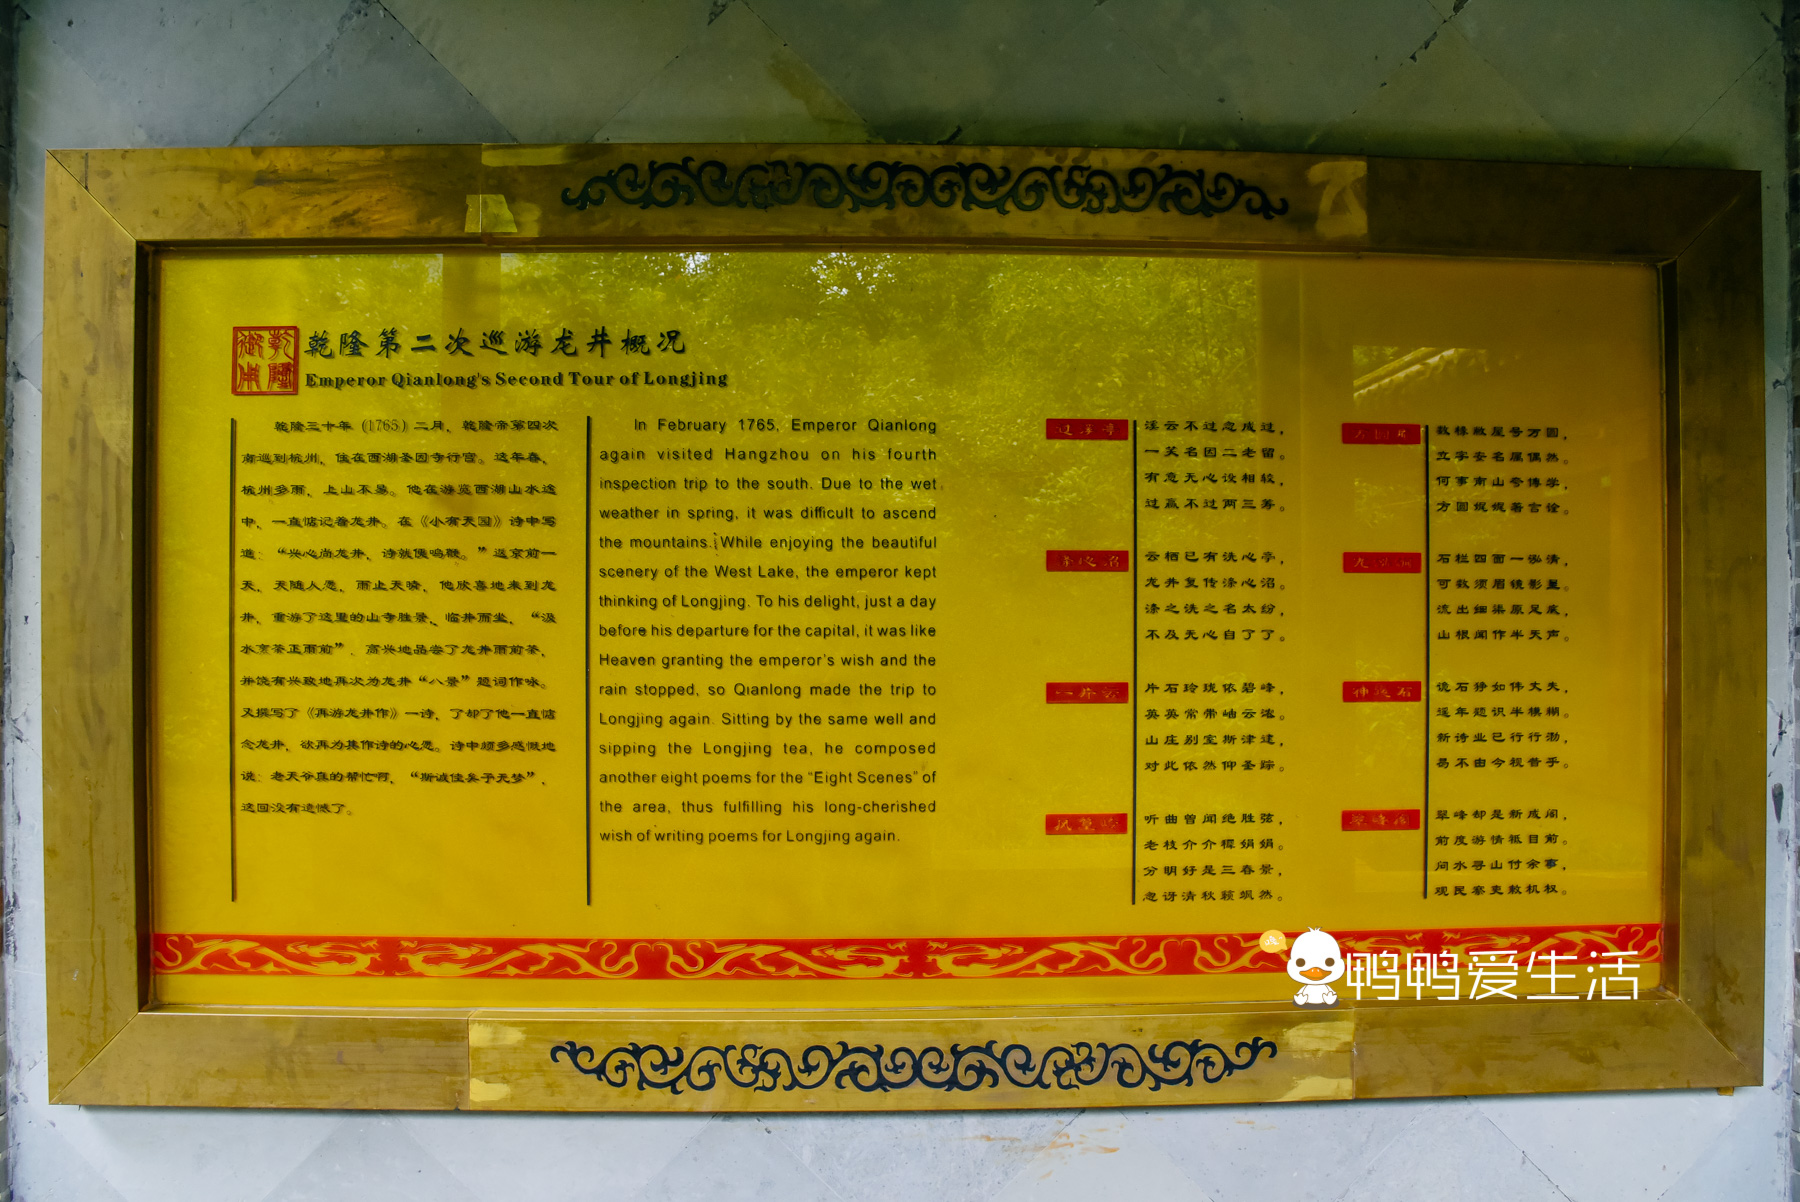 乾隆御书
乾隆第二次巡游龙井概况
Emperor Qianlong's Second Tour of Longjing
乾隆三十年（1765）二月，乾隆帝第四次
南巡到杭州，住在西湖圣因寺行宫。这年春，
杭州多雨，上山不易。他在游览西湖山水途
中，一直惦记着龙井。在《小有天园》诗中写
道：“兴心尚龙井，诗就促鸣鞭。”返京前一
天，天随人愿，雨止天晴，他欣喜地来到龙
井，重游了这里的山寺胜景，临井而坐，“汲
水烹茶正雨前”，高兴地品尝了龙井雨前茶，
并饶有兴致地再次为龙井“八景”题词作咏。
又撰写了《再游龙井作》一诗，了却了他一直惦
念龙井，欲再为其作诗的心愿。诗中颇多感慨地
说：老天爷真的帮忙啊，“斯诚佳矣予无梦”，
这回没有遗憾了。
In February 1765, Emperor Qianlong
again visited Hangzhou on his fourth
inspection trip to the south. Due to the wet
weather in spring, it was difficult to ascend
the mountains. While enjoying the beautiful
scenery of the West Lake, the emperor kept
thinking of Longjing. To his delight, just a day
before his departure for the capital, it was like
Heaven granting the emperor's wish and the
rain stopped, so Qianlong made the trip to
Longjing again. Sitting by the same well and
sipping the Longjing tea, he composed
another eight poems for the "Eight Scenes" of
the area, thus fulfilling his long-cherished
wish of writing poems for Longjing again.
过溪亭
淫云不过忽成过，
一笑名因二老留。
有意无心设相较，
过赢不过两三筹。
涤心沼
云栖已有洗心亭，
龙井复传涤心沼。
涤之洗之名太纷，
不及无心自了了。
一片云
片石玲珑依碧峰，
英英常带岫云浓。
山庄别室斯津逮，
对此依然仰圣踪。
风篁岭
听曲曾闻绝胜弦，
老枝介介稚娟娟。
分明好是三春景，
忽讶清秋籁飒然。
方圆庵
数椽敝屋号方圆，
立字安名属偶然。
何事南山夸博学，
方圆娓娓著言诠。
龙泓涧
石栏四面一泓清，
可数须眉镜影呈。
流出细渠原足底，
山根闻作半天声。
神运石
诡石狰如伟丈夫，
逐年题识半模糊。
新诗业已行行泐，
易不由今视昔乎。
翠峰阁
翠峰却是新成阁，
前度游情祗目前。
问水寻山付余事，
观民察吏敕机权。
鸭鸭爱生活